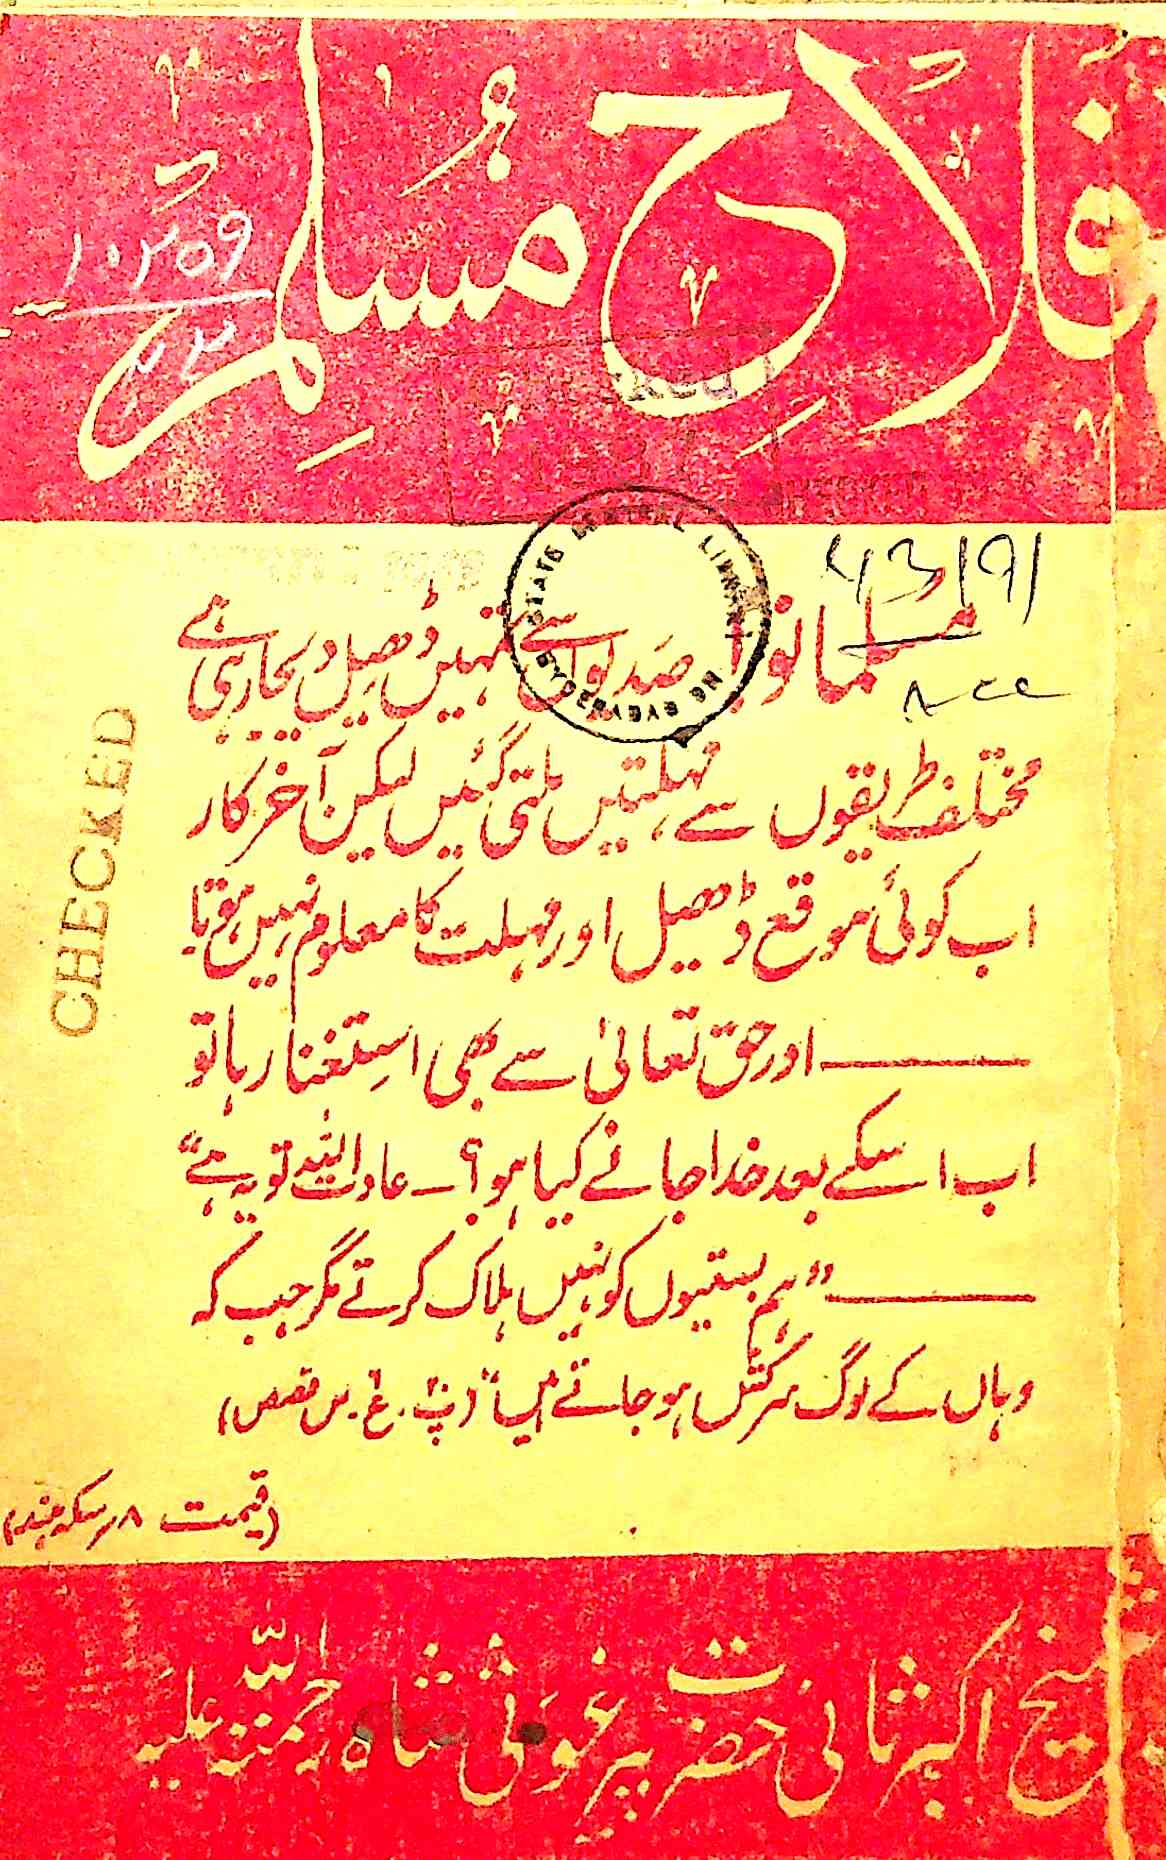 فلاحِ مُسلم
۱۰۲۵۹
CHECKED
STATE CENTRAL LIBRARY
HYDERABAD
43191
مسلمانو! صدیوں سے تمہیں ڈھیل دیجا رہی ہے
مختلف طریقوں سے مہلتیں ملتی گئیں لیکن آخر کار
اب کوئی موقع ڈھیل اور مہلت کا معلوم نہیں ہوتا
——— اور حق تعالیٰ سے بھی استغنا رہا تو
اب اسکے بعد خدا جانے کیا ہو؟ ـ عادت اللہ تو یہ ہے"
——— "ہم بستیوں کو نہیں ہلاک کرتے مگر جب کہ
وہاں کے لوگ سرکش ہو جاتے ہیں" (پ۔ ع۔ س قصص)
(قیمت ۸؍ سکہ ہند)
شیخ اکبر ثانی حضرت پیر غوثی شاہ رحمتہ اللہ علیہ